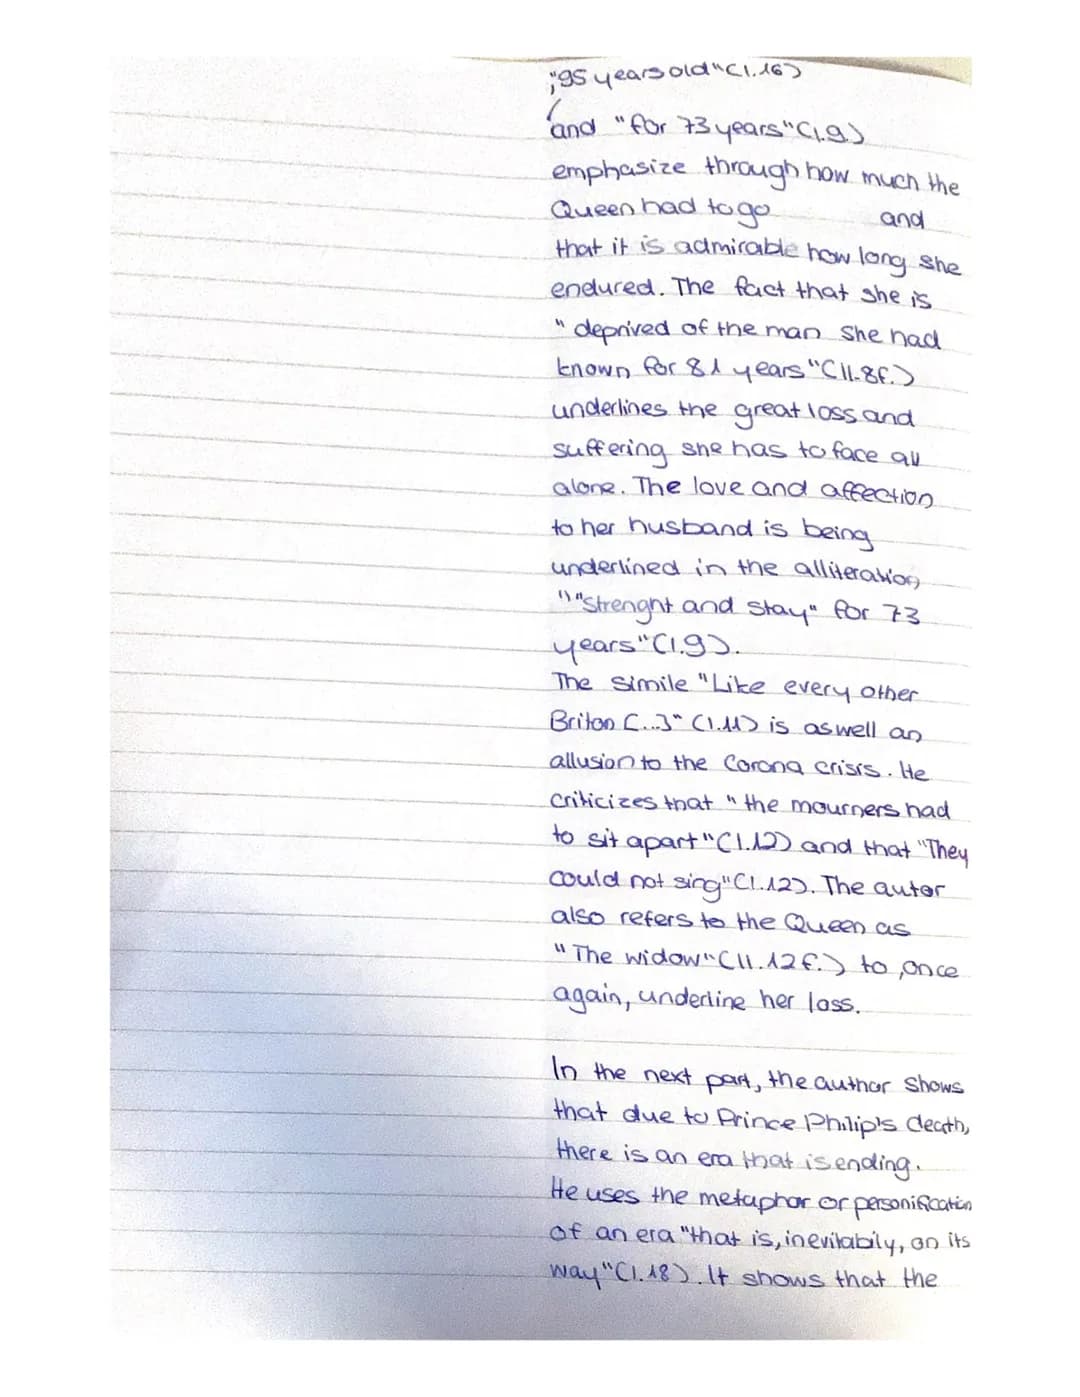 ;"95 years old"(l.16)
and "for 73 years"(l.9)
emphasize through how much the
Queen had to go and
that it is admirable how long she
endured. The fact that she is
"deprived of the man she had
known for 81 years"(ll.8f.)
underlines the great loss and
suffering she has to face all
alone. The love and affection
to her husband is being
underlined in the alliteration
""Strenght and stay" for 73
years"(l.9).
The simile "Like every other
Briton [...]" (l.11) is aswell an
allusion to the Corona crisis. He
criticizes that "the mourners had
to sit apart"(l.12) and that "They
could not sing"(l.12). The autor
also refers to the Queen as
"The widow"(ll.12f.) to, once
again, underline her loss.
In the next part, the author shows
that due to Prince Philip's death,
there is an era that is ending.
He uses the metaphor or personification
of an era "that is, inevitabily, on its
way"(l.18). It shows that the